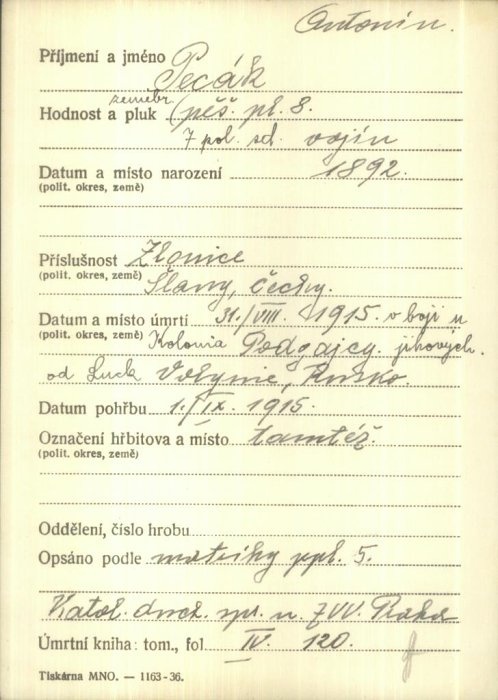 Antonín.
Příjmení a jméno Pecák
zeměbr.
Hodnost a pluk (pěš. pl. 8.
7 pol. sd. vojín
Datum a místo narození 1892.
(polit. okres, země)
Příslušnost Zlonice
(polit. okres, země) Slaný, Čechy.
Datum a místo úmrtí 31./VIII. 1915. v boji u
(polit. okres, země) Kolonia Podgajcy. jihových.
od Luck Volynie, Rusko.
Datum pohřbu 1./IX. 1915.
Označení hřbitova a místo tamtéž.
(polit. okres, země)
Oddělení, číslo hrobu
Opsáno podle matriky ppl. 5.
Katol. duch. spr. u ZVV. Praha
Úmrtní kniha: tom., fol. IV. 120.
Tiskárna MNO. — 1163-36.